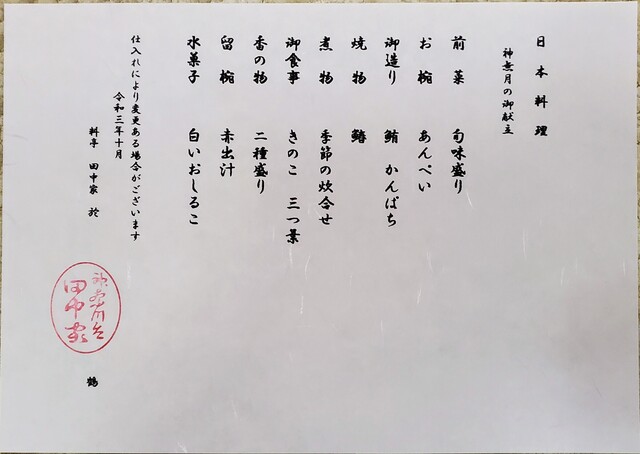 日本料理
神無月の御献立
前菜 旬味盛り
お椀 あんぺい
御造り 鮪 かんぱち
焼物 鰆
煮物 季節の炊合せ
御食事 きのこ 三つ葉
香の物 二種盛り
留椀 赤出汁
水菓子 白いおしるこ
仕入れにより変更ある場合がございます
令和三年十月
料亭 田中家 於 鶴
神奈川台
田中家